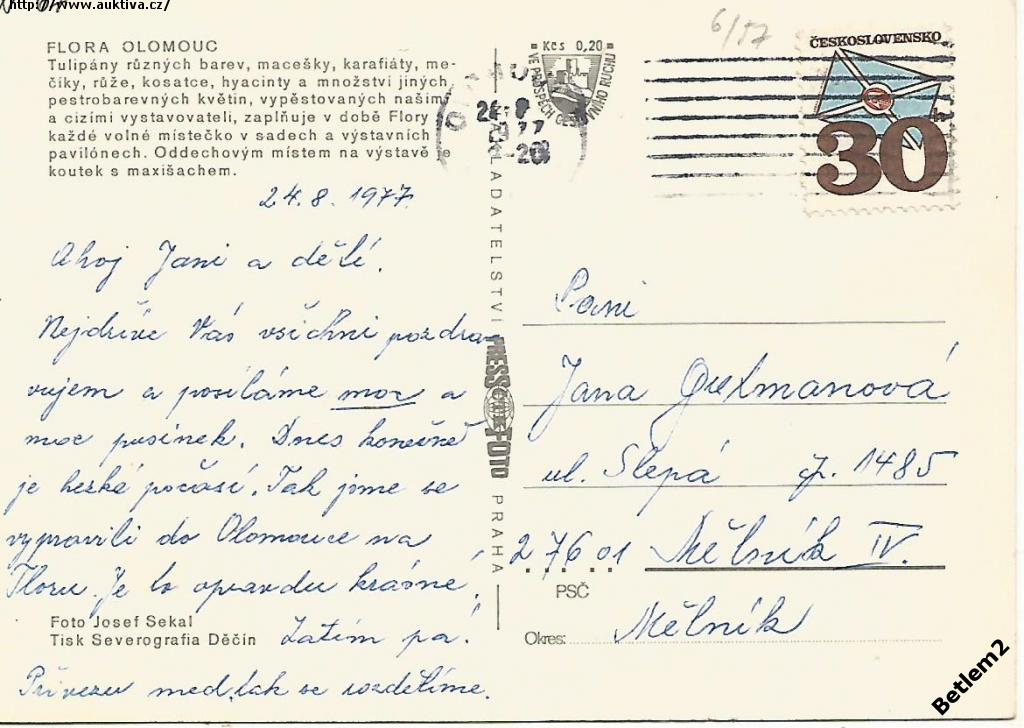 http://www.auktiva.cz/
6/57
FLORA OLOMOUC
Tulipány různých barev, macešky, karafiáty, me-
čiky, růže, kosatce, hyacinty a množství jiných
pestrobarevných květin, vypěstovaných našimi
a cizími vystavovateli, zaplňuje v době Flory
každé volné místečko v sadech a výstavních
pavilónech. Oddechovým místem na výstavě je
koutek s maxišachem.
24.8.1977.
Ahoj Jani a dětí.
Nejdříve Vás všichni pozdra-
vujem a posíláme moc a
moc pusinek. Dnes konečně
je hezké počasí. Tak jsme se
vypravili do Olomouce na
Floru. Je to opravdu krásné!
Zatím pá!
Přivezu med, tak se rozdělíme.
Foto Josef Sekal
Tisk Severografia Děčín
VYDAVATELSTVÍ PRESSFOTO PRAHA
Kčs 0,20
VE PROSPĚCH CESTOVNÍHO RUCHU
ČESKOSLOVENSKO
30
Paní
Jana Gutmanová
ul. Slepá čp. 1485
276 01 Mělník IV.
PSČ
Okres: Mělník
Betlem2